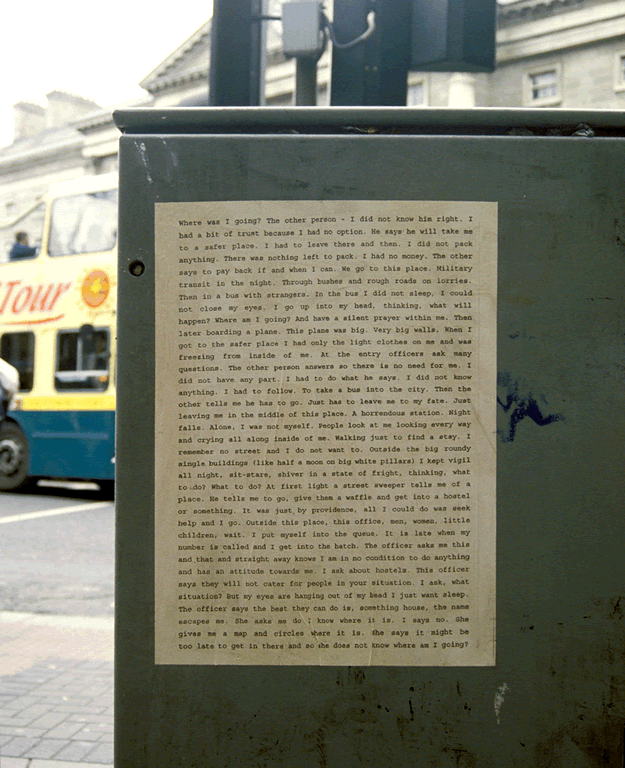 Tour
Where was I going? The other person - I did not know him right. I
had a bit of trust because I had no option. He says he will take me
to a safer place. I had to leave there and then. I did not pack
anything. There was nothing left to pack. I had no money. The other
says to pay back if and when I can. We go to this place. Military
transit in the night. Through bushes and rough roads on lorries.
Then in a bus with strangers. In the bus I did not sleep, I could
not close my eyes. I go up into my head, thinking, what will
happen? Where am I going? And have a silent prayer within me. Then
later boarding a plane. This plane was big. Very big walls. When I
got to the safer place I had only the light clothes on me and was
freezing from inside of me. At the entry officers ask many
questions. The other person answers so there is no need for me. I
did not have any part. I had to do what he says. I did not know
anything. I had to follow. To take a bus into the city. Then the
other tells me he has to go. Just has to leave me to my fate. Just
leaving me in the middle of this place. A horrendous station. Night
falls. Alone, I was not myself. People look at me looking every way
and crying all along inside of me. Walking just to find a stay. I
remember no street and I do not want to. Outside the big roundy
single buildings (like half a moon on big white pillars) I kept vigil
all night, sit-stare, shiver in a state of fright, thinking, what
to do? What to do? At first light a street sweeper tells me of a
place. He tells me to go, give them a waffle and get into a hostel
or something. It was just by providence, all I could do was seek
help and I go. Outside this place, this office, men, women, little
children, wait. I put myself into the queue. It is late when my
number is called and I get into the hatch. The officer asks me this
and that and straight away knows I am in no condition to do anything
and has an attitude towards me. I ask about hostels. This officer
says they will not cater for people in your situation. I ask, what
situation? But my eyes are hanging out of my head I just want sleep.
The officer says the best they can do is, something house, the name
escapes me. She asks me do I know where it is. I says no. She
gives me a map and circles where it is. She says it might be
too late to get in there and so she does not know where am I going?